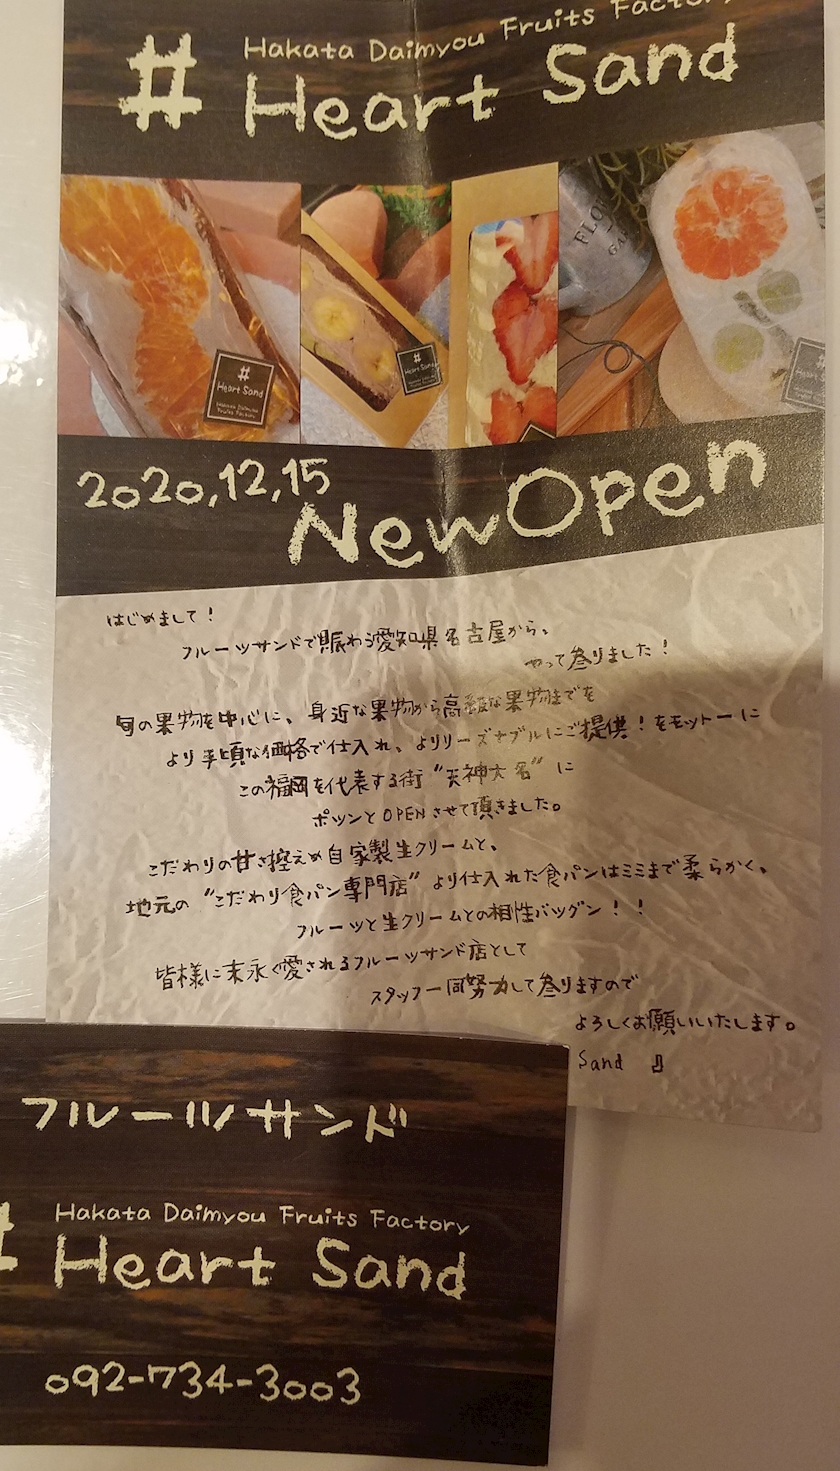 Hakata Daimyou Fruits Factory
# Heart Sand
FLO
GAR
#
Heart Sand
Hakata Daimyou
Fruits Factory
#
Heart Sand
#
2020,12,15
New Open
はじめまして!
フルーツサンドで賑わう愛知県名古屋から、
やって参りました!
旬の果物を中心に、身近な果物から高級な果物までを
より手頃な価格で仕入れ、よりリーズナブルにご提供!をモットーに
この福岡を代表する街“天神大名”に
ポツンとOPENさせて頂きました。
こだわりの甘さ控えめ自家製生クリームと、
地元の“こだわり食パン専門店”より仕入れた食パンはミミまで柔らかく、
フルーツと生クリームとの相性バツグン!!
皆様に末永く愛されるフルーツサンド店として
スタッフ一同努力して参りますので
よろしくお願いいたします。
Sand 』
フルーツサンド
Hakata Daimyou Fruits Factory
# Heart Sand
092-734-3003